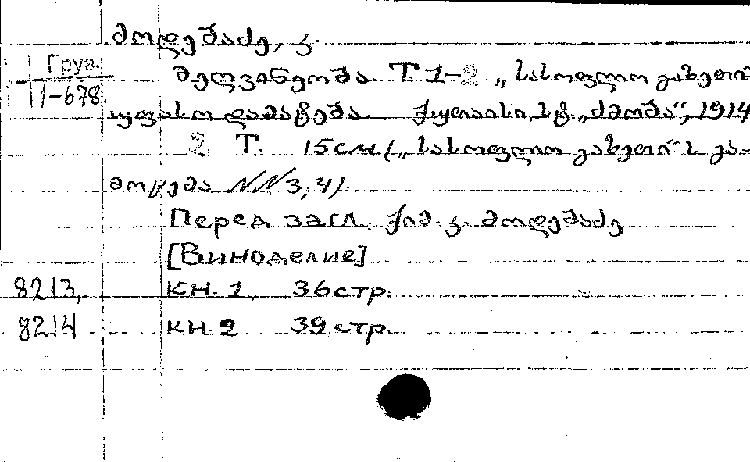 მოდებაძე, კ
Груз.
11-678
მეღვინეობა Т 1-2 „სასოფლო გაზეთი
უფასო დამატება ქუთაისი, სტ. „ძმობა“, 1914
2 Т. 15 см („სასოფლო გაზეთი"ს გა-
მოცემა NN 3,4)
Перед загл ქიმ. კ. მოდებაძე
[Виноделие]
8213, кн. 1 36 стр.
8214 кн 2 39 стр.